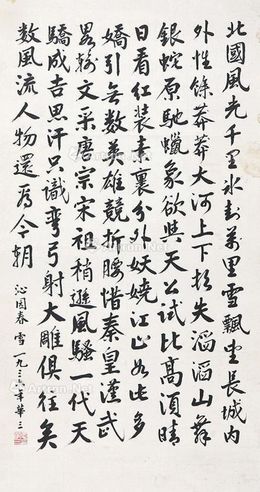 北國風光千里冰封萬里雪飄望長城內
外惟餘莽莽大河上下頓失滔滔山舞
銀蛇原馳蠟象欲與天公試比高須晴
日看紅裝素裹分外妖嬈江山如此多
嬌引無數英雄競折腰惜秦皇漢武
畧輸文采唐宗宋祖稍遜風騷一代天
驕成吉思汗只識彎弓射大雕俱往矣
數風流人物還看今朝
沁園春 雪 一九三六年華三